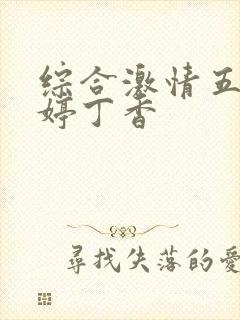 综合激情五
婷丁香
尋找失落的愛